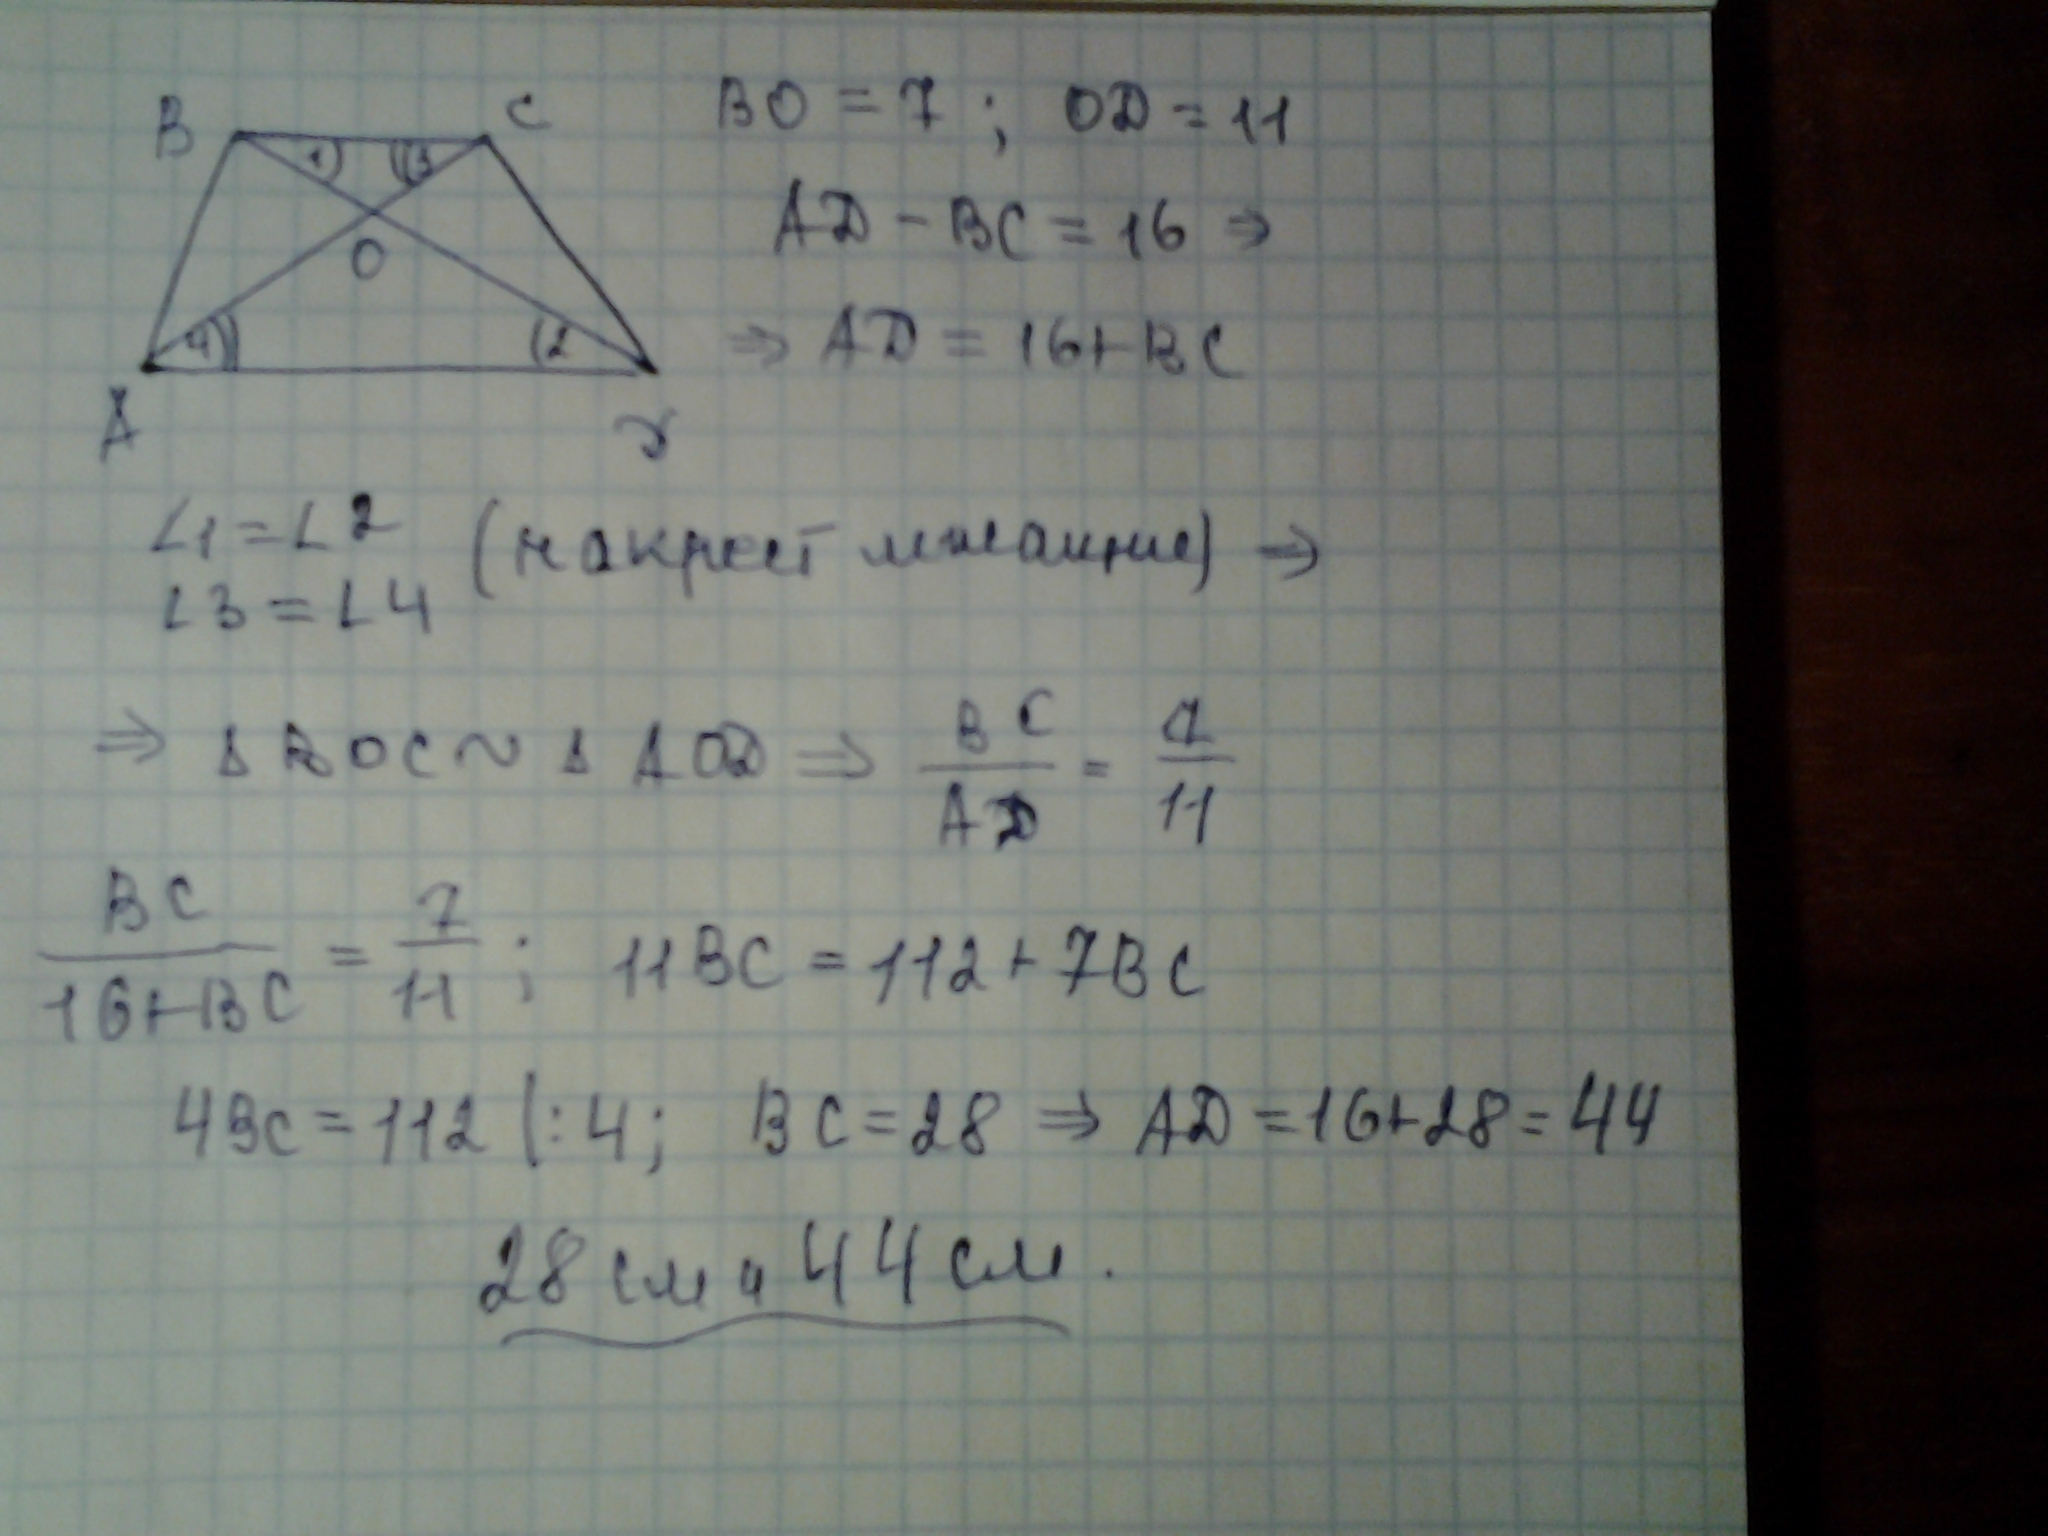 B C
1 3
O
4 2
A D
BO = 7 ; OD = 11
AD - BC = 16 ⇒
⇒ AD = 16+BC
∠1 = ∠2 (накрест лежащие) ⇒
∠3 = ∠4
⇒ Δ BOC ~ Δ AOD ⇒ BC/AD = 7/11
BC/16+BC = 7/11 ; 11BC = 112 + 7BC
4BC = 112 |:4; BC = 28 ⇒ AD = 16+28 = 44
28 см и 44 см.